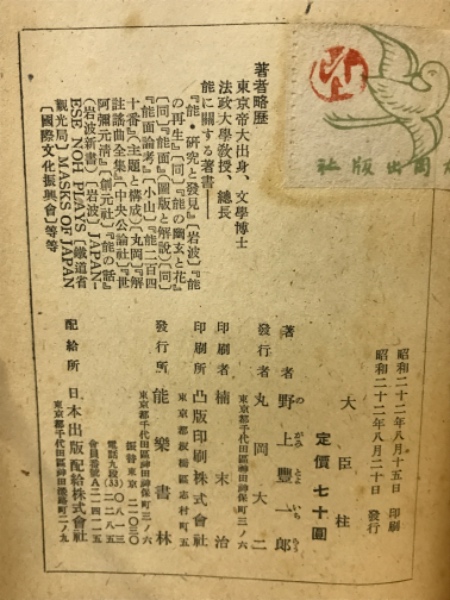 著者略歴
東京帝大出身、文學博士
法政大學敎授、總長
能に關する著書――
『能・硏究と發見』〔岩波〕『能
の再生』〔同〕『能の幽玄と花』
〔同〕『能面』(圖版と解說)〔同〕
『能面論考』〔小山〕『能二百四
十番』(主題と構成)〔丸岡〕『解
註謠曲全集』〔中央公論社〕『世
阿彌元淸』〔創元社〕『能の話』
(岩波新書)〔岩波〕JAPAN-
ESE NOH PLAYS〔鐵道省
觀光局〕MASKS OF JAPAN
〔國際文化振興會〕等等
昭和二十二年八月十五日 印刷
昭和二十二年八月二十日 發行
大臣柱
定價七十圓
著者 野上豐一郎
のがみとよいちろう
發行者 丸岡大二
東京都千代田區神田神保町三ノ六
印刷者 楠末治
印刷所 凸版印刷株式會社
東京都板橋區志村町五
發行所 能樂書林
東京都千代田區神田神保町三ノ六
振替東京二〇三〇
電話九段(33)〇八一三
二二八五
會員番號A二一四一二五
配給所 日本出版配給株式會社
東京都千代田區神田淡路町二ノ九
社版出